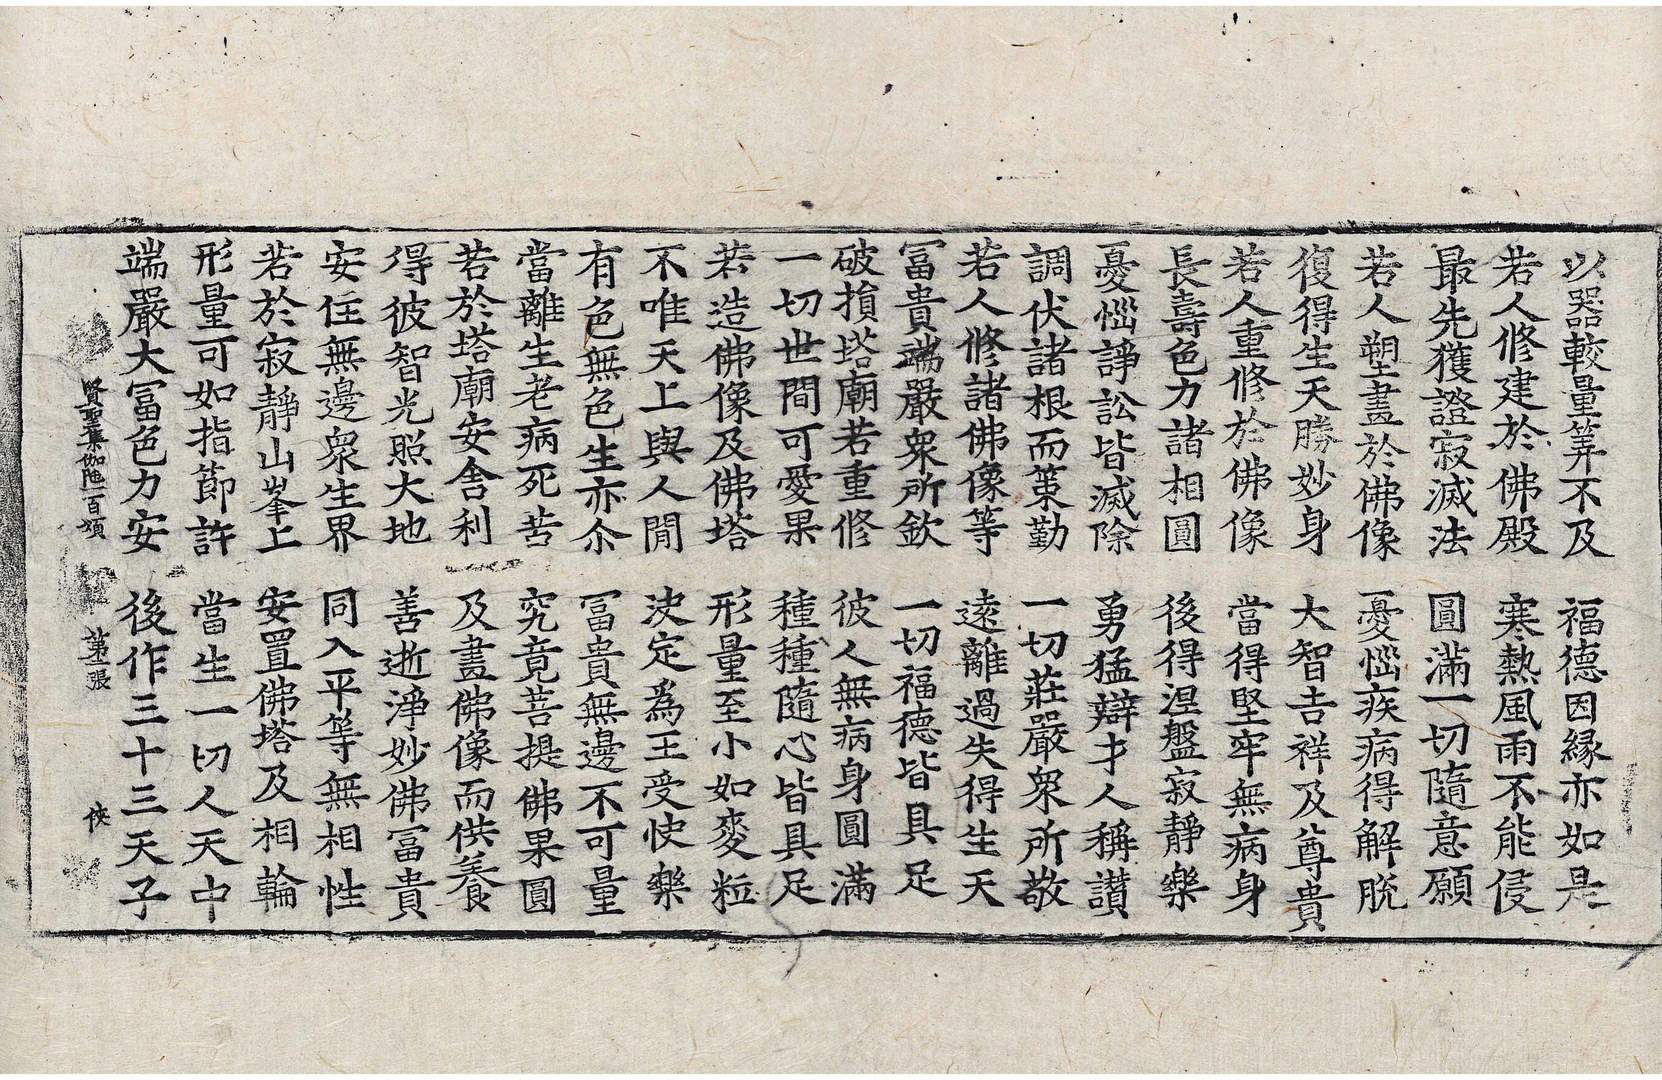 以器較量筭不及　福德因緣亦如是
若人修建於佛殿　寒熱風雨不能侵
最先獲證寂滅法　圓滿一切隨意願
若人塑畫於佛像　憂惱疾病得解脫
復得生天勝妙身　大智吉祥及尊貴
若人重修於佛像　當得堅牢無病身
長壽色力諸相圓　後得涅盤寂靜樂
憂惱諍訟皆滅除　勇猛辯才人稱讚
調伏諸根而策勤　一切莊嚴衆所敬
若人修諸佛像等　遠離過失得生天
冨貴端嚴衆所欽　一切福德皆具足
破損塔廟若重修　彼人無病身圓滿
一切世間可愛果　種種隨心皆具足
若造佛像及佛塔　形量至小如麥粒
不唯天上與人間　決定為王受快樂
有色無色生亦尒　冨貴無邊不可量
當離生老病死苦　究竟菩提佛果圓
若於塔廟安舎利　及畫佛像而供養
得彼智光照大地　善逝淨妙佛冨貴
安住無邊衆生界　同入平等無相性
若於寂靜山峯上　安置佛塔及相輪
形量可如指節許　當生一切人天中
端嚴大冨色力安　後作三十三天子
賢聖集伽陁一百頌　第二張　俠